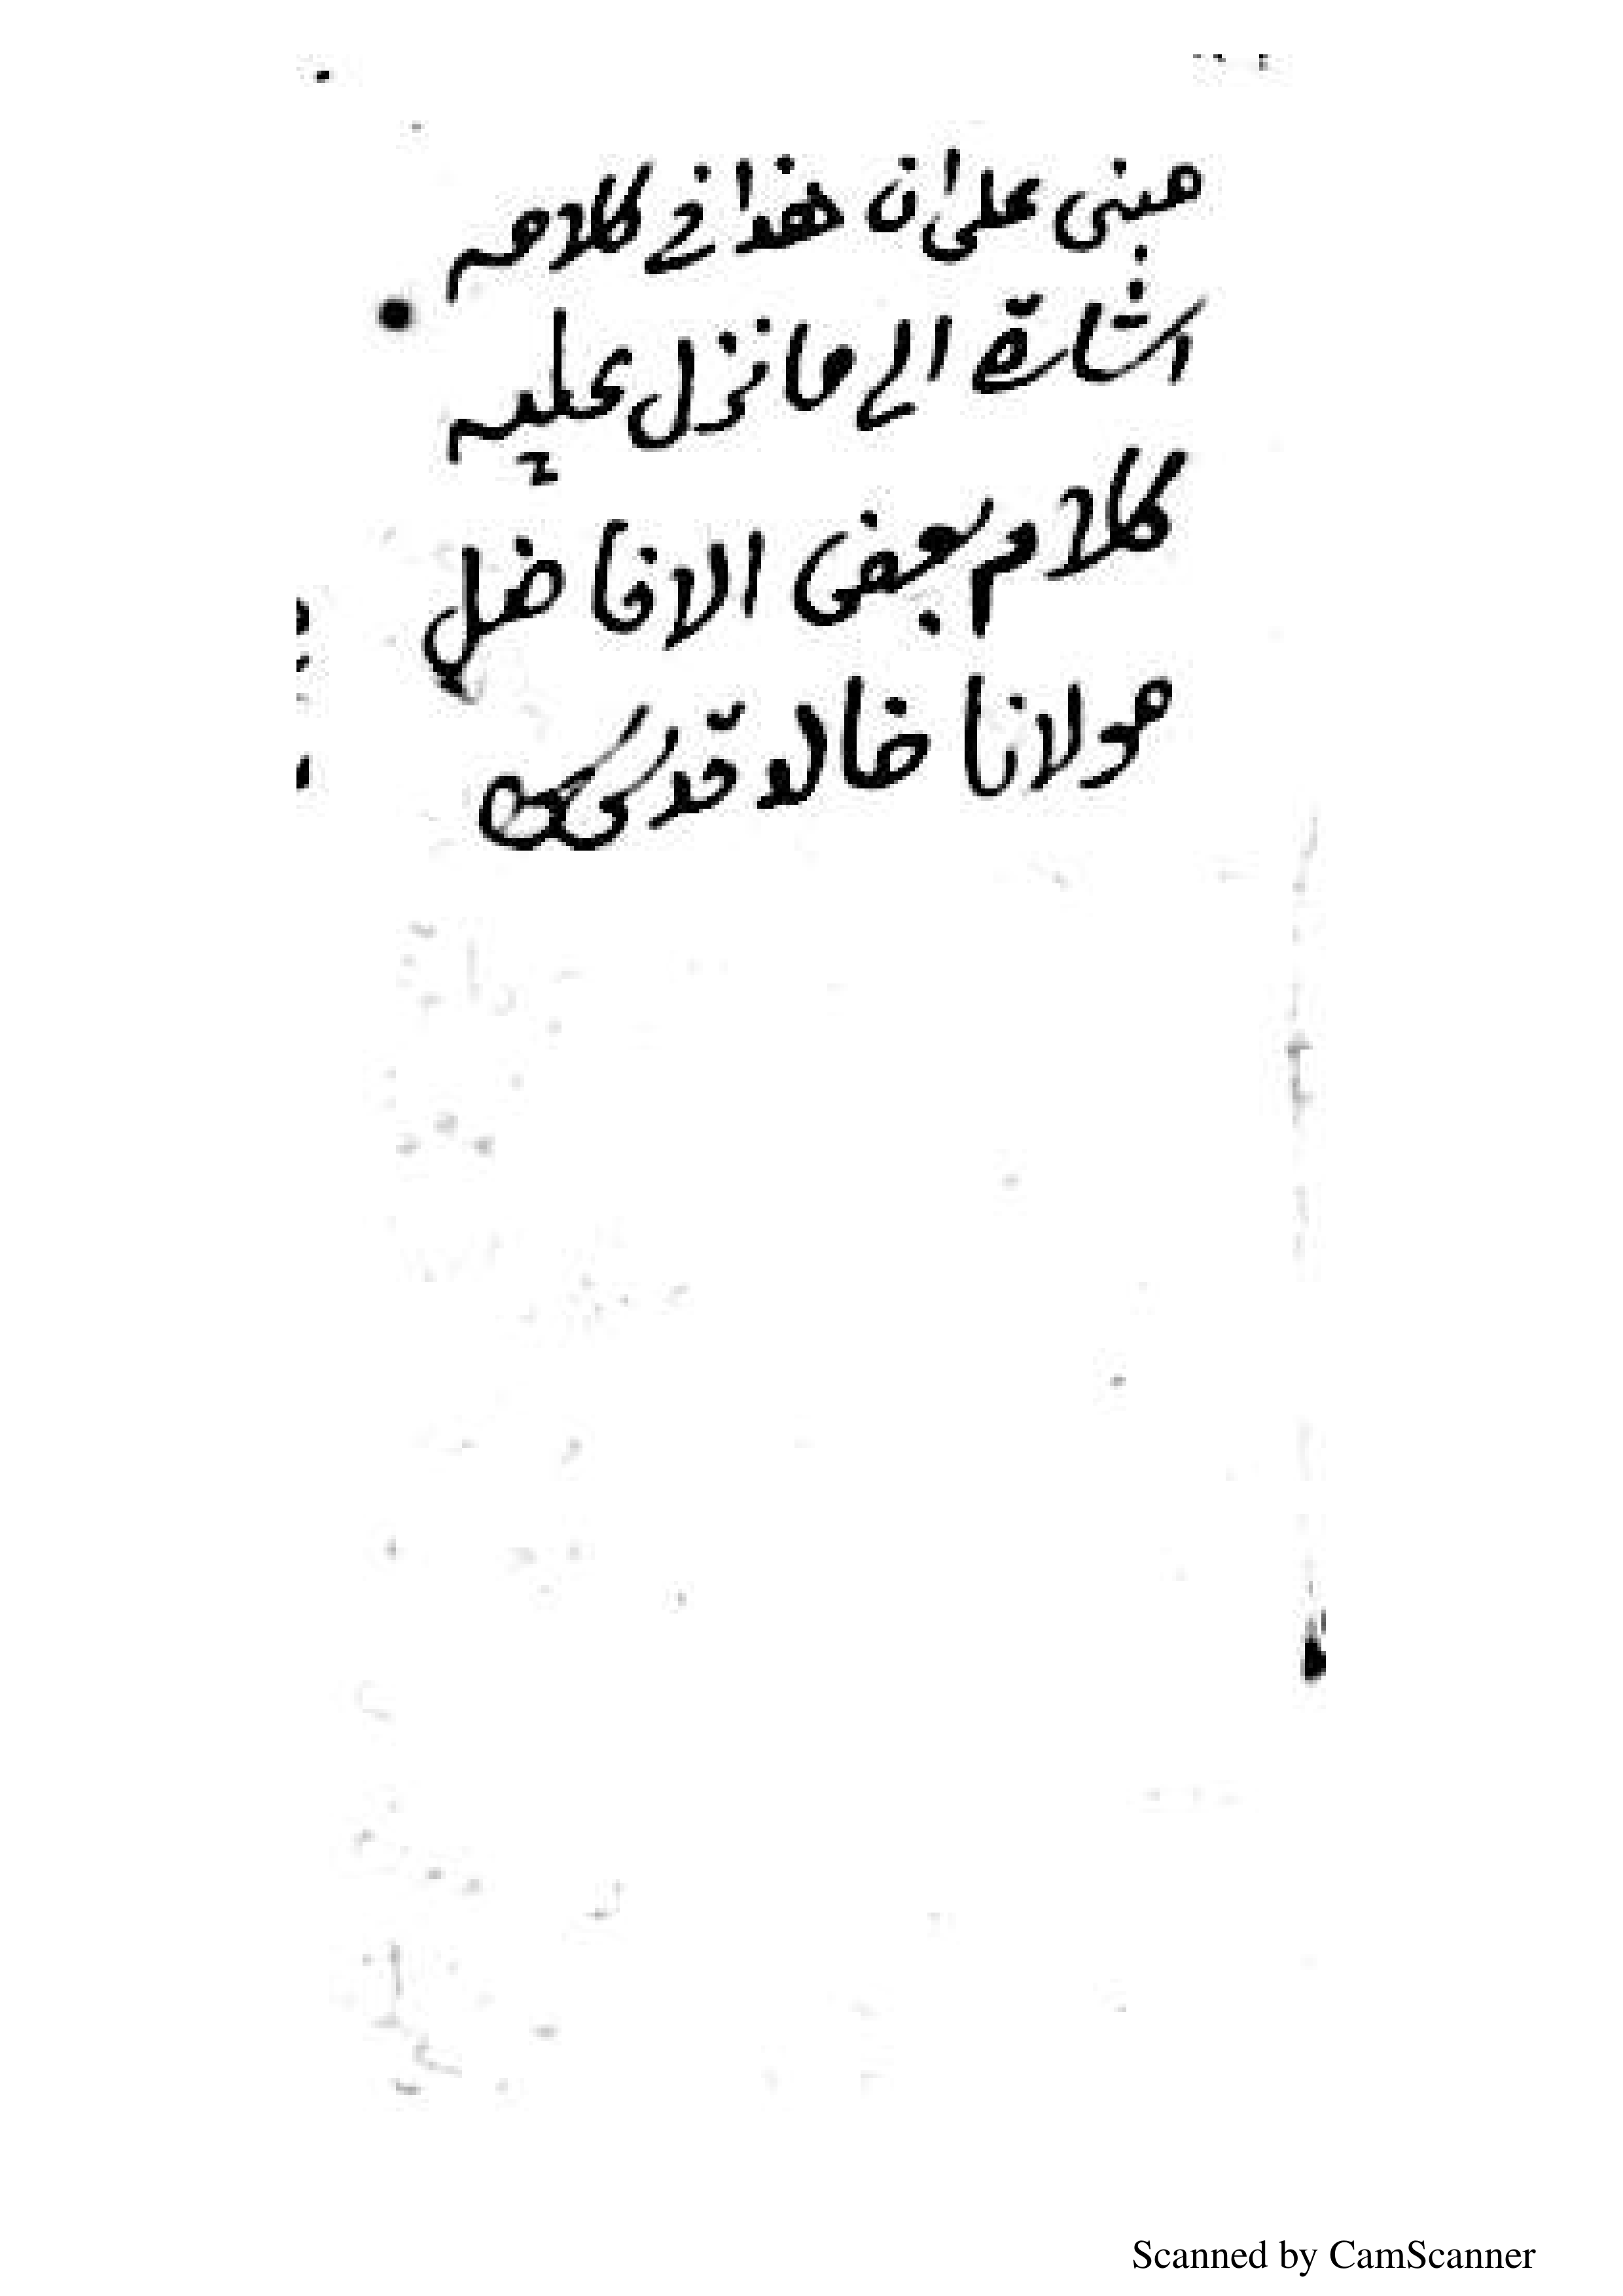 مبنى على ان هذا في كلامه
اشارة الى ما نزل عليه
كلام بعض الافاضل
مولانا خالد قدس
Scanned by CamScanner